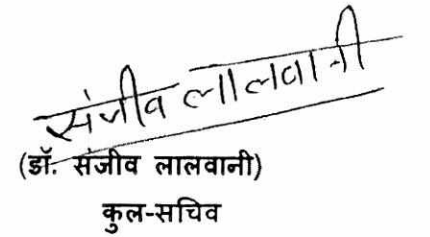 संजीव लालवानी
(डॉ. संजीव लालवानी)
कुल-सचिव